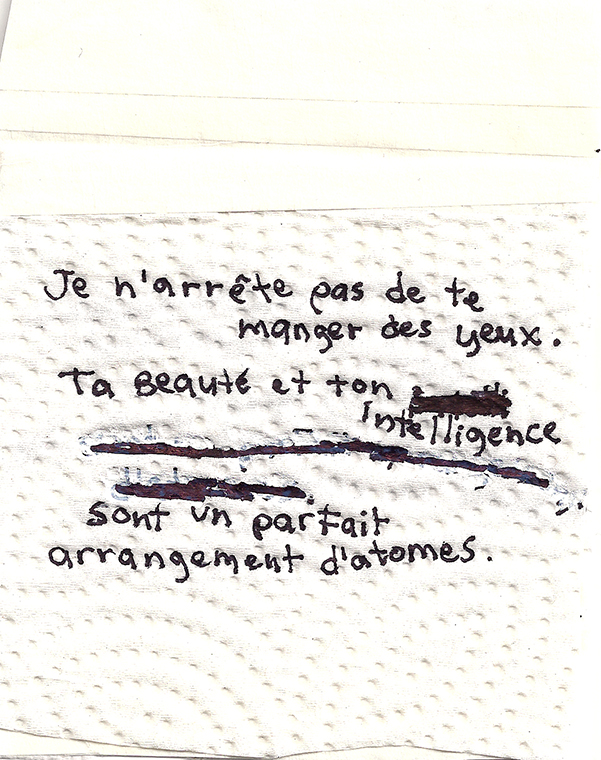 Je n'arrête pas de te
manger des yeux.
Ta Beauté et ton
Intelligence
sont un parfait
arrangement d'atomes.